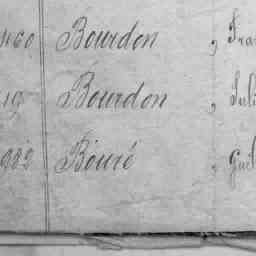 460 Bourdon , Fra
19 Bourdon , Juli
982 Bouré , Guil